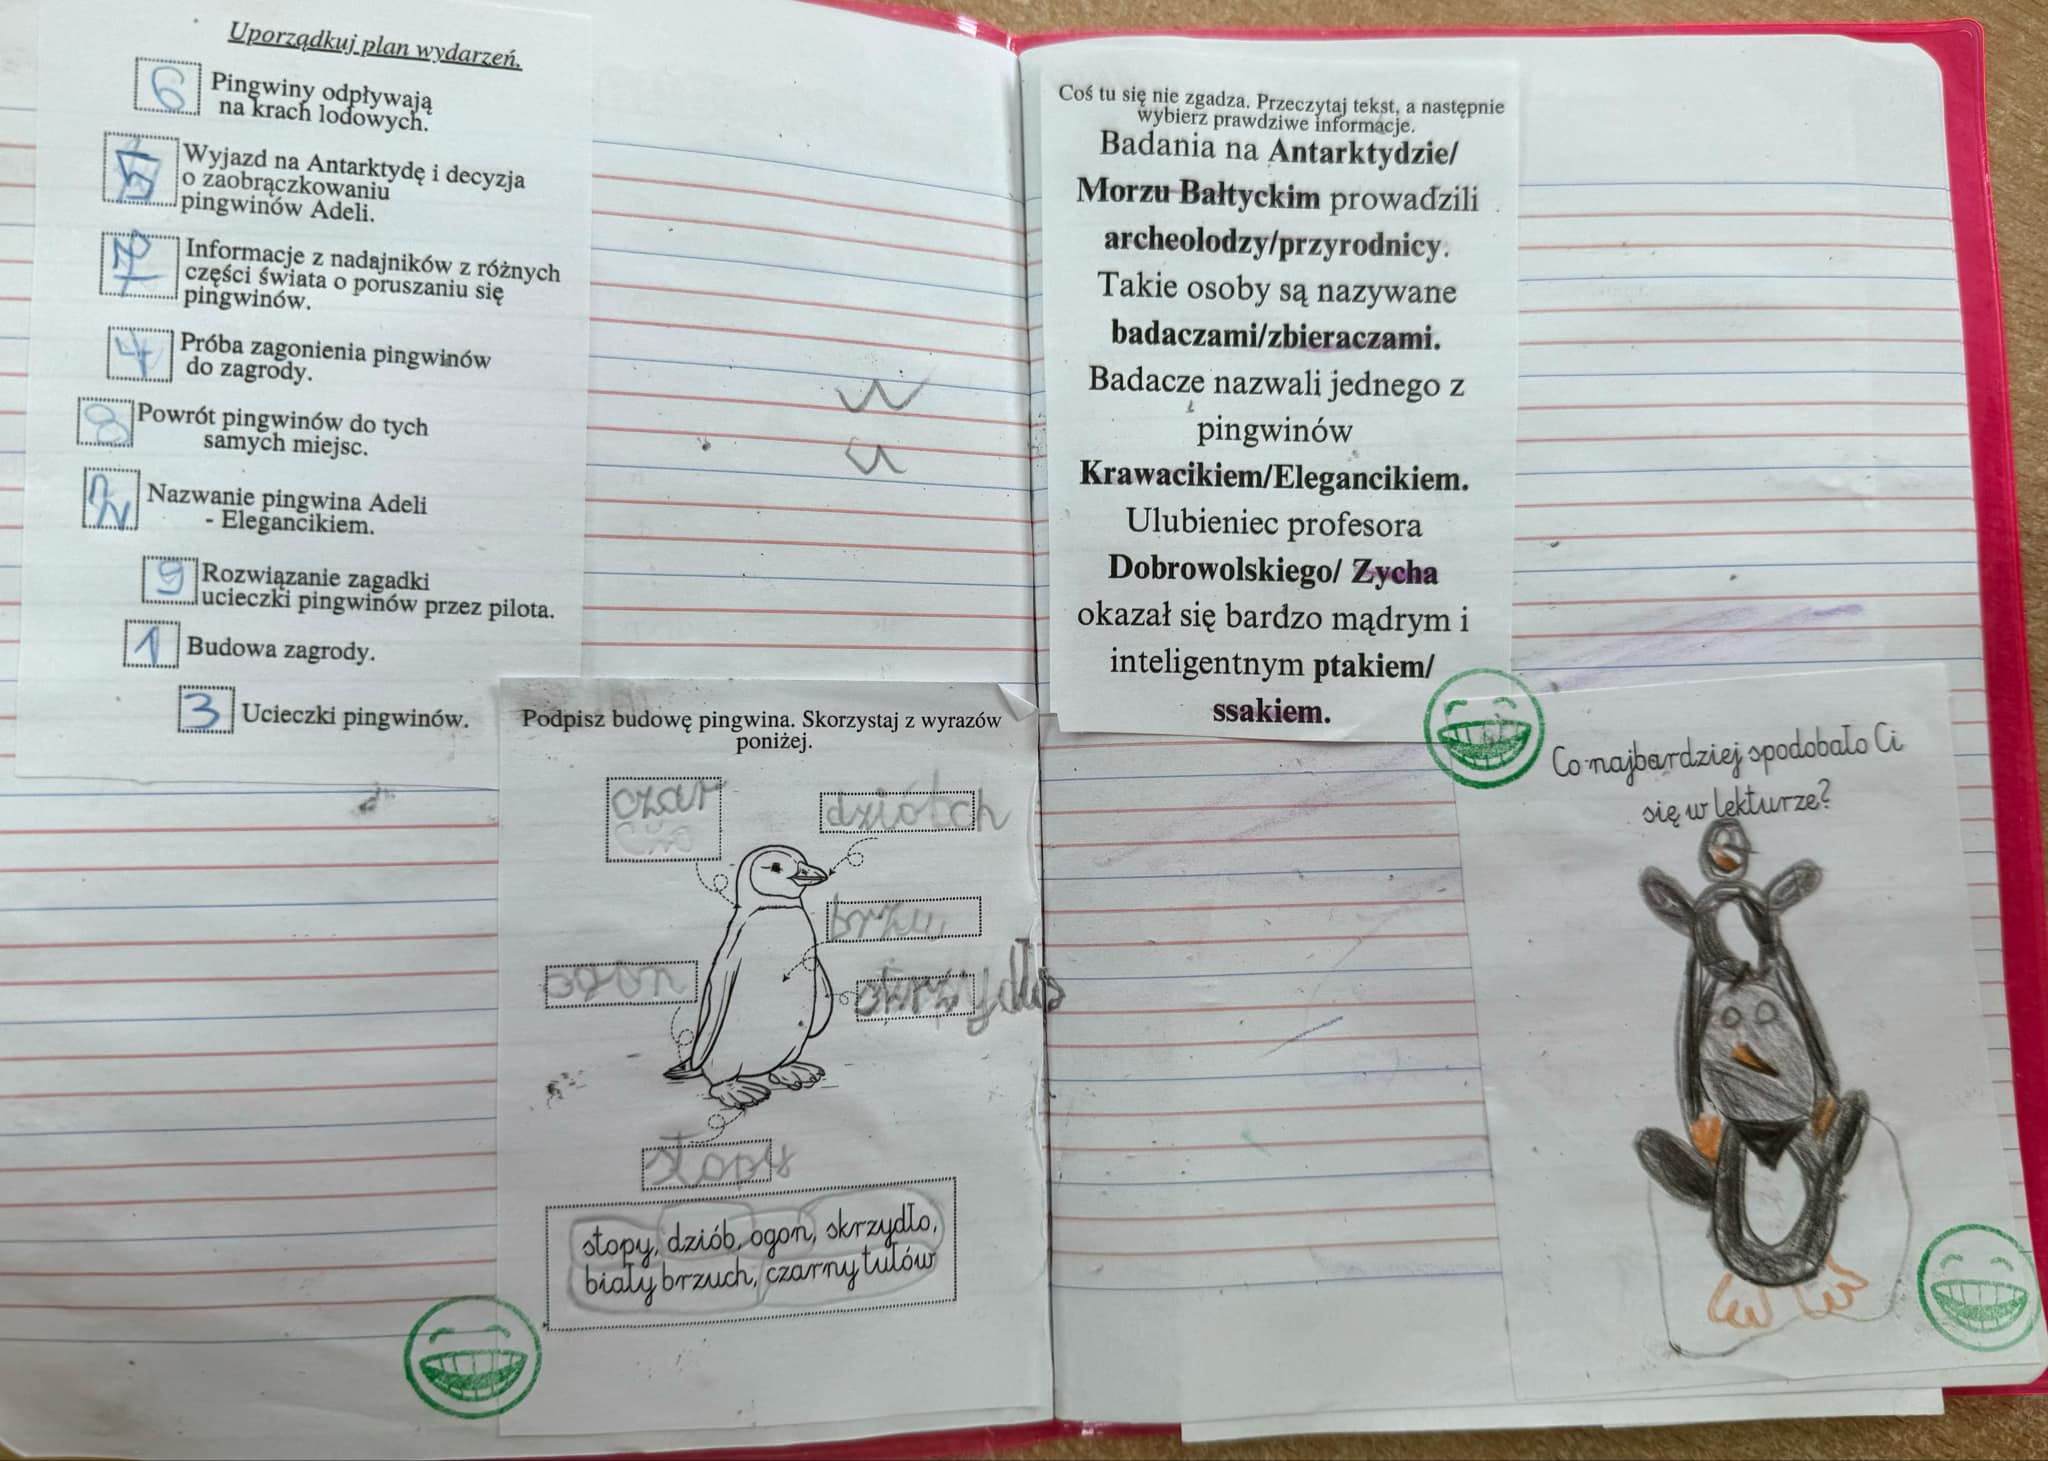 Uporządkuj plan wydarzeń.
6 Pingwiny odpływają
na krach lodowych.
5 Wyjazd na Antarktydę i decyzja
o zaobrączkowaniu
pingwinów Adeli.
7 Informacje z nadajników z różnych
części świata o poruszaniu się
pingwinów.
4 Próba zagonienia pingwinów
do zagrody.
8 Powrót pingwinów do tych
samych miejsc.
2 Nazwanie pingwina Adeli
- Elegancikiem.
9 Rozwiązanie zagadki
ucieczki pingwinów przez pilota.
1 Budowa zagrody.
3 Ucieczki pingwinów.
Podpisz budowę pingwina. Skorzystaj z wyrazów
poniżej.
czar
ogon
stopy
stopy, dziób, ogon, skrzydło,
biały brzuch, czarny tułów
Coś tu się nie zgadza. Przeczytaj tekst, a następnie
wybierz prawdziwe informacje.
Badania na Antarktydzie/
Morzu Bałtyckim prowadzili
archeolodzy/przyrodnicy.
Takie osoby są nazywane
badaczami/zbieraczami.
Badacze nazwali jednego z
pingwinów
Krawacikiem/Elegancikiem.
Ulubieniec profesora
Dobrowolskiego/ Zycha
okazał się bardzo mądrym i
inteligentnym ptakiem/
ssakiem.
Co najbardziej spodobało Ci
się w lekturze?